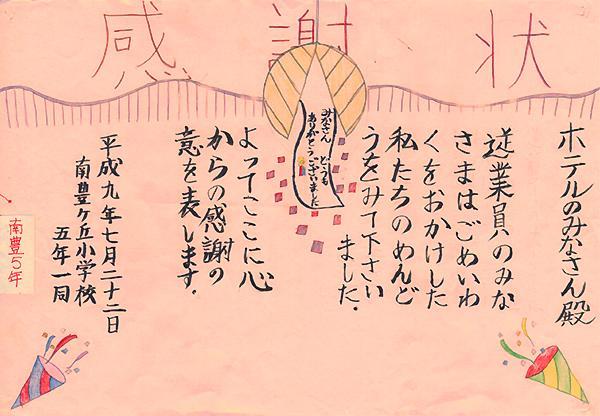 感謝状
みなさん どうも
ありがとうございました
ホテルのみなさん殿
従業員のみな
さまはごめいわ
くをおかけした
私たちのめんど
うをみて下さい
ました.
よってここに心
からの感謝の
意を表します.
平成九年七月二十二日
南豊ヶ丘小学校
五年一同
南豊5年